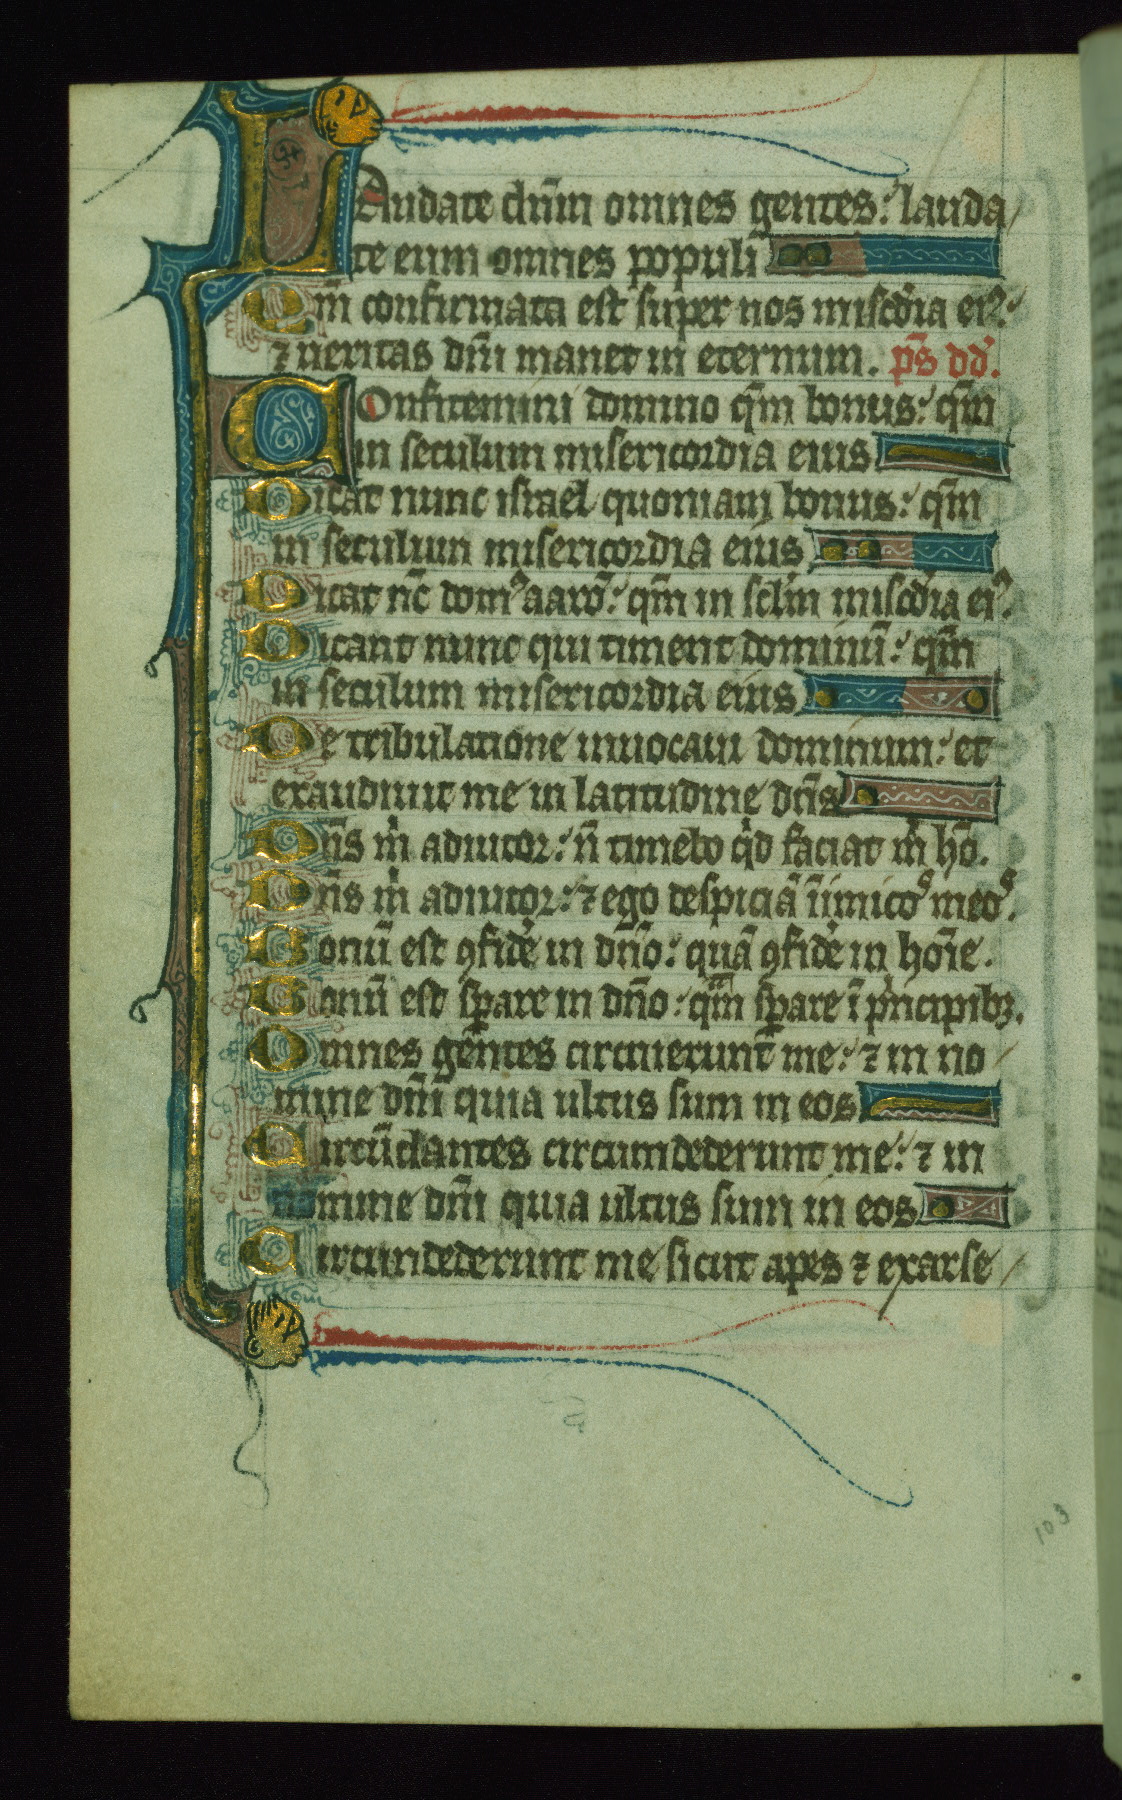 Laudate dnm̄ omnes gentes: lauda
te eum omnes populi
Qm̄ confirmata est super nos misc̄dia eiꝰ:
⁊ ueritas dnī manet in eternum. p̄s dd̕.
Confitemini domino qm̄ bonus: qm̄
in seculum misericordia eius
Dicat nunc israel quoniam bonus: qm̄
in seculum misericordia eius
Dicat nc̄ domꝰ aarō: qm̄ in sclm̄ misc̄dia eiꝰ.
Dicant nunc qui timent dominū: qm̄
in seculum misericordia eius
De tribulatione inuocaui dominum: et
exaudiuit me in latitudine dn̄s
Dn̄s m̍ adiutor: n̄ timebo q̍d faciat m̍ hō.
Dn̄s m̍ adiutor: ⁊ ego despiciā īimicoꝰ meoꝰ.
Bonū est ꝯfide̕ in dn̄o: quā ꝯfide̕ in hoīe.
Bonū est sꝑare in dn̄o: qm̄ sꝑare ī pͥncipibꝫ.
Omnes gentes circuierunt me: ⁊ in no
mine dnī quia ultus sum in eos
Circūdantes circumdederunt me: ⁊ in
nomine dnī quia ultus sum in eos
Circundederunt me sicut apes ⁊ exarse
103